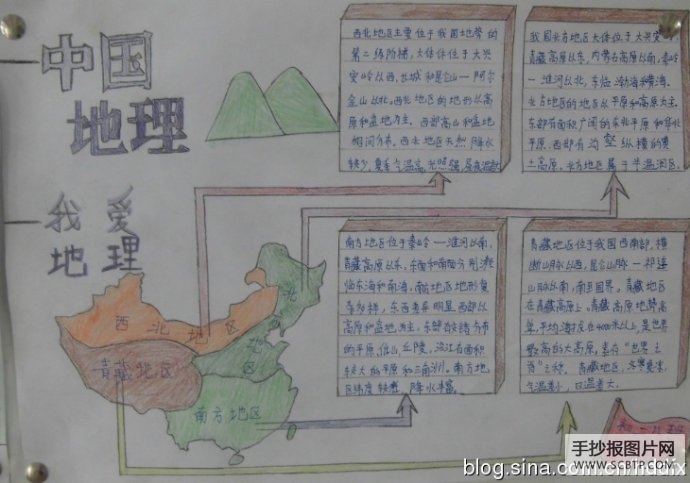 中国
地理
我爱
地理
西北地区主要位于我国地势的
第二级阶梯,大体位于大兴
安岭以西,长城和昆仑山—阿尔
金山以北。西北地区的地形以高
原和盆地为主。西部高山和盆地
相间分布。西北地区天然降水
较少,夏季气温高,光照强,昼夜温差
我国北方地区大体位于大兴安岭、
青藏高原以东,内蒙古高原以南,秦岭
—淮河以北,东临渤海和黄海。
北方地区的地区以平原和高原为主。
东部有面积广阔的东北平原和华北
平原。西部有沟壑纵横的黄
土高原。北方地区属于半温润区。
南方地区位于秦岭—淮河以南,
青藏高原以东。东面和南面分别濒
临东海和南海。南方地区地形复
杂多样,东西差异明显。西部以
高原和盆地为主,东部
的平原,低山,丘陵,江有面积
较大的平原和三角洲。南方地
区纬度较低,降水丰富。
青藏地区位于我国西南部,横
断山脉以西,昆仑山脉—祁连
山脉以南,南至国界。青藏地区
在青藏高原上。青藏高原地势高
,平均海拔在4000米以上,是世界
最高的大高原,素有“世界
”之称。青藏地区,冬寒夏凉,
气温小,日温差大。
西北地区
北方地区
青藏地区
南方地区
初二
手抄报图片网
WWW.SCBTP.COM